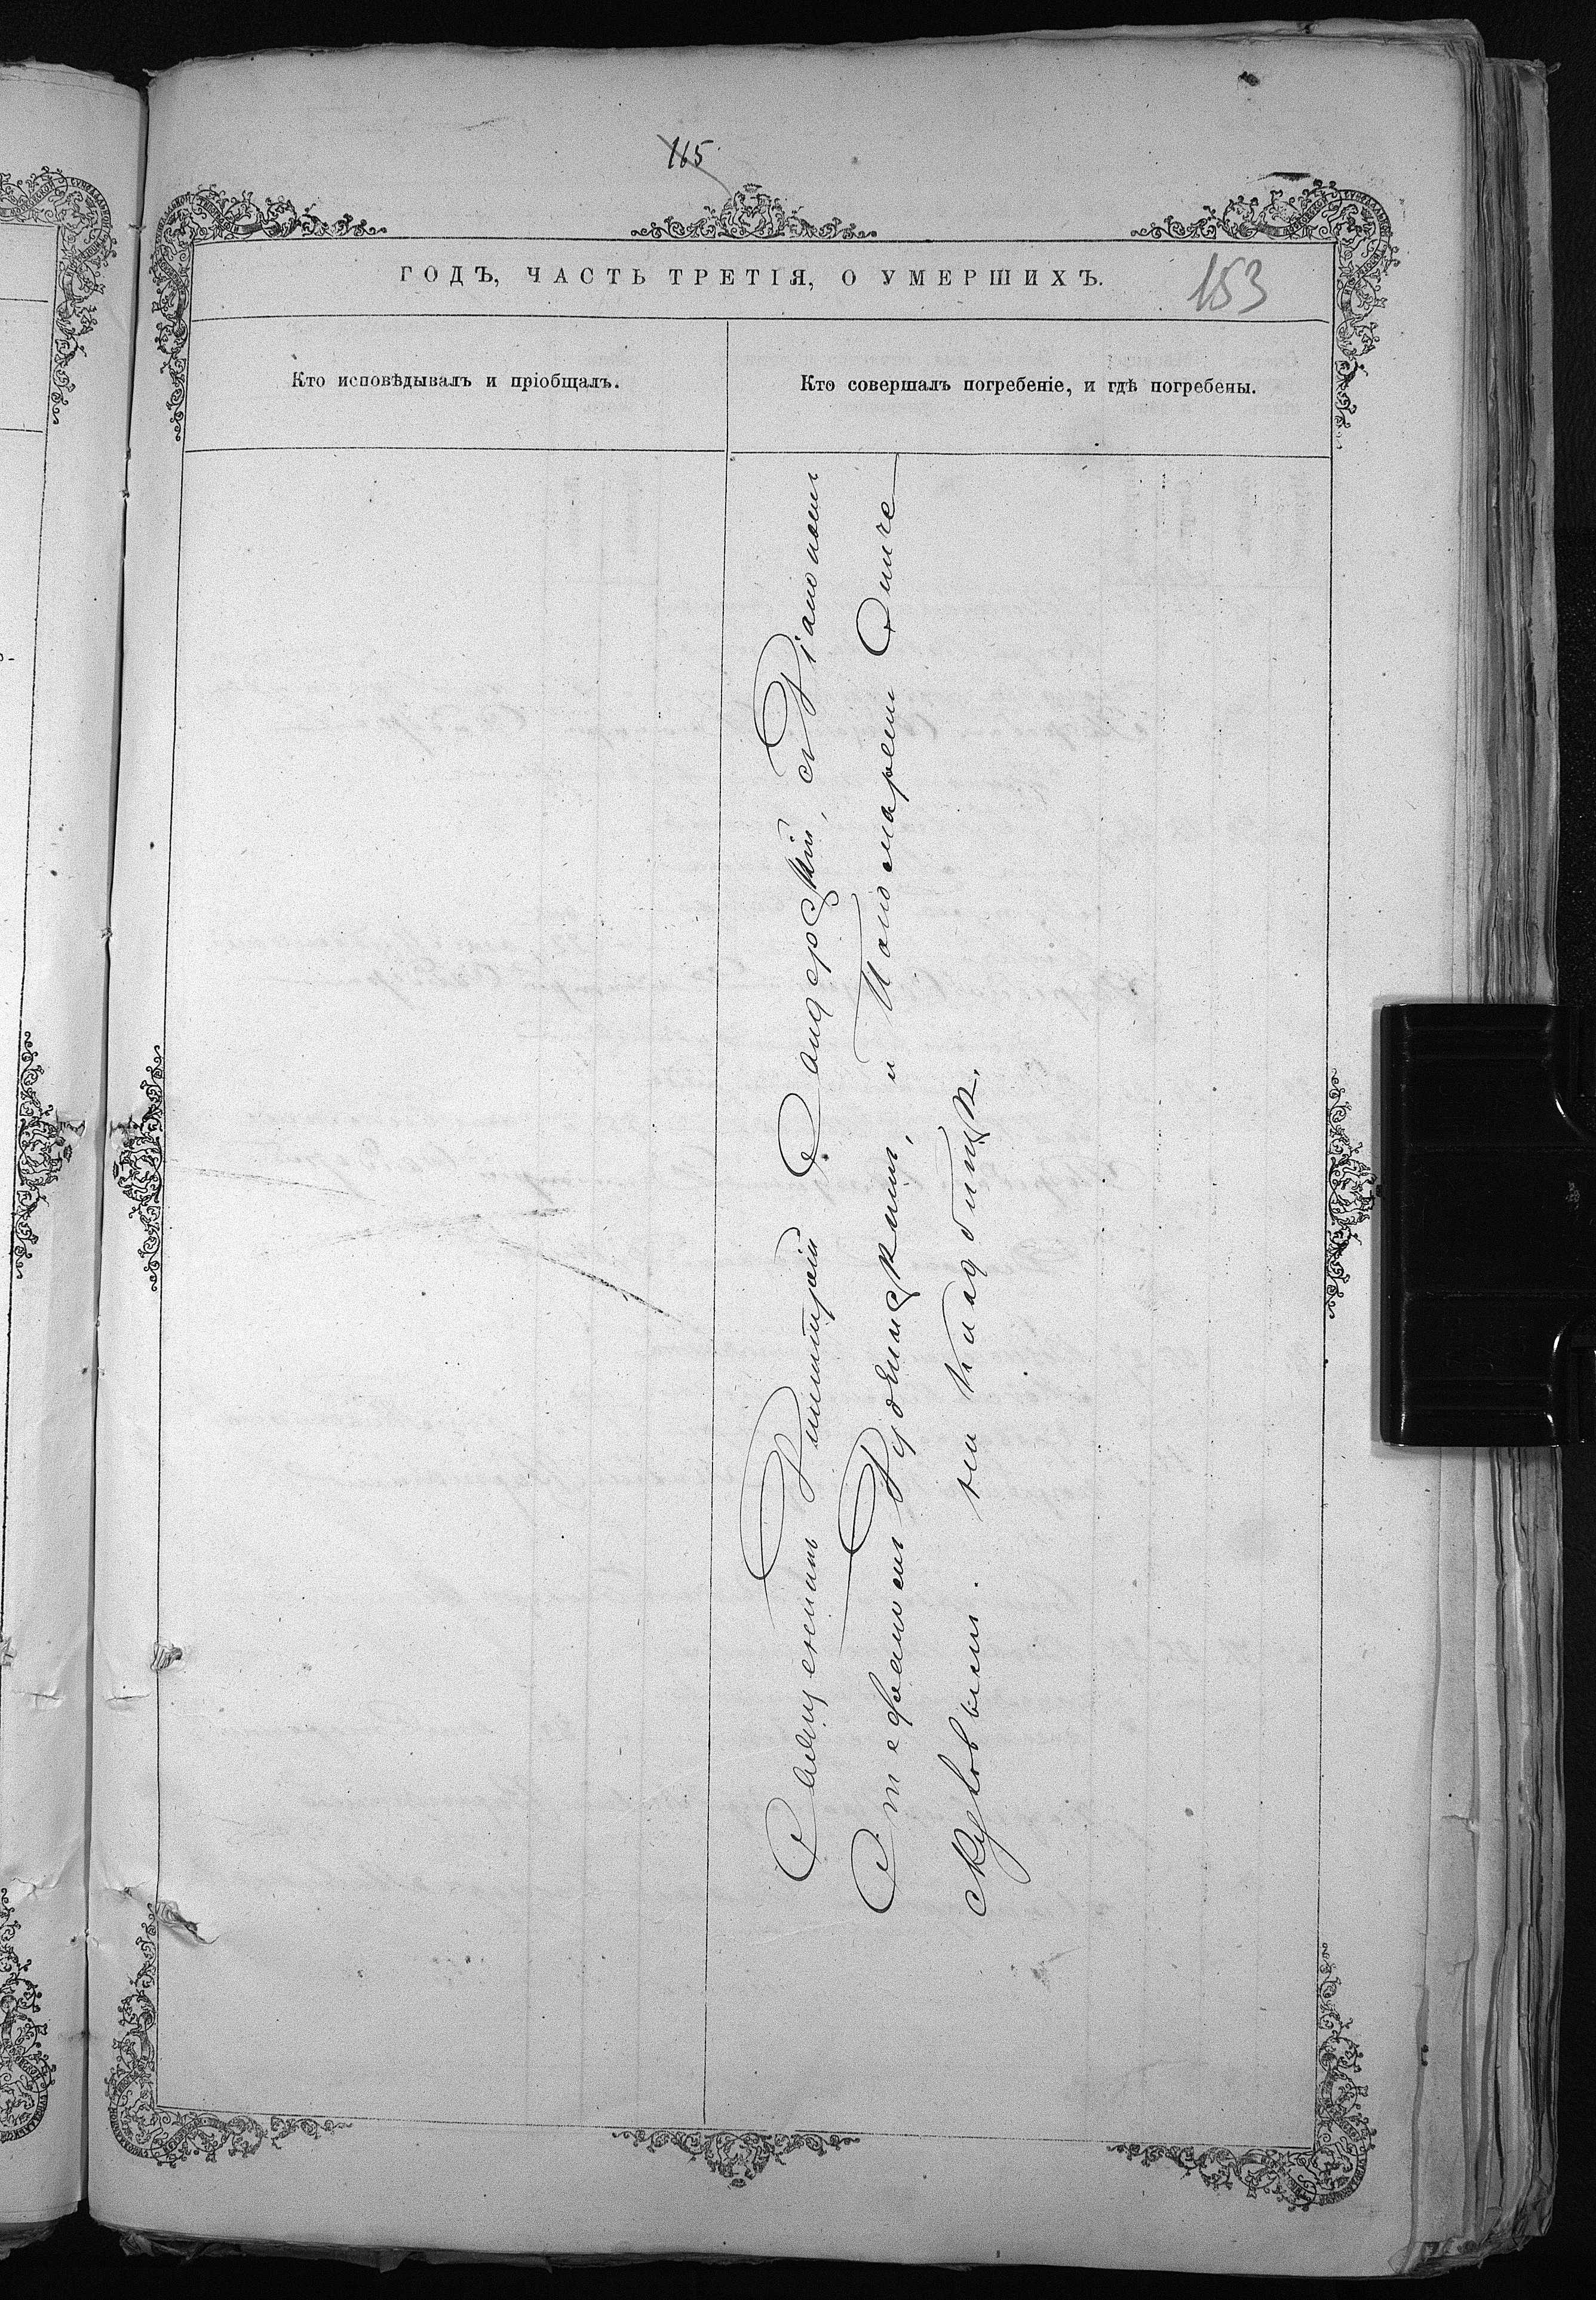 165
ГОДЪ, ЧАСТЬ ТРЕТІЯ, О УМЕРШИХЪ.
153
Кто исповѣдывалъ и пріобщалъ.
Кто совершалъ погребеніе, и гдѣ погребены.
Священникъ Димитрій Сандерскій, съ Діакономъ
Стефаномъ Рубчинскимъ, и Пономаремъ Онче
скуловымъ. на кладбищѣ.